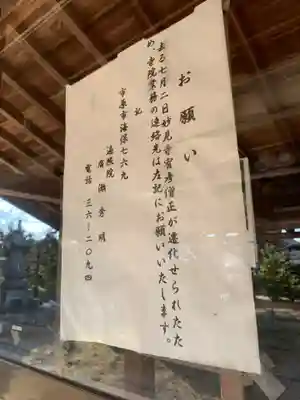 お願い
去る七月二日妙見寺宥孝僧正が遷化せられたた
め、寺院業務の連絡先は左記にお願いいたします。
記
市原市海保七六九
遍照院
廣瀬秀明
電話 三六―二〇九四